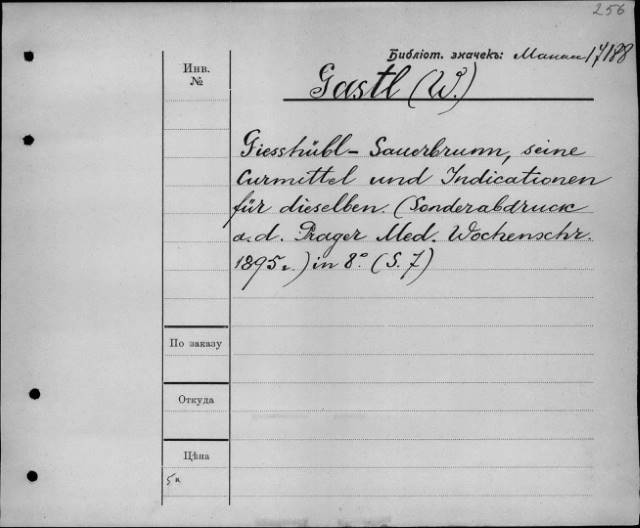 256
Библіот. значекъ:
Инв.
№
Gastl (W.)
Giesshübl-Sauerbrunn, seine
Curmittel und Indicationen
für dieselben. (Sonderabdruck
a. d. Prager Med. Wochenschr.
1895 г.) in 8° (S. 7)
По заказу
Откуда
Цѣна
5к